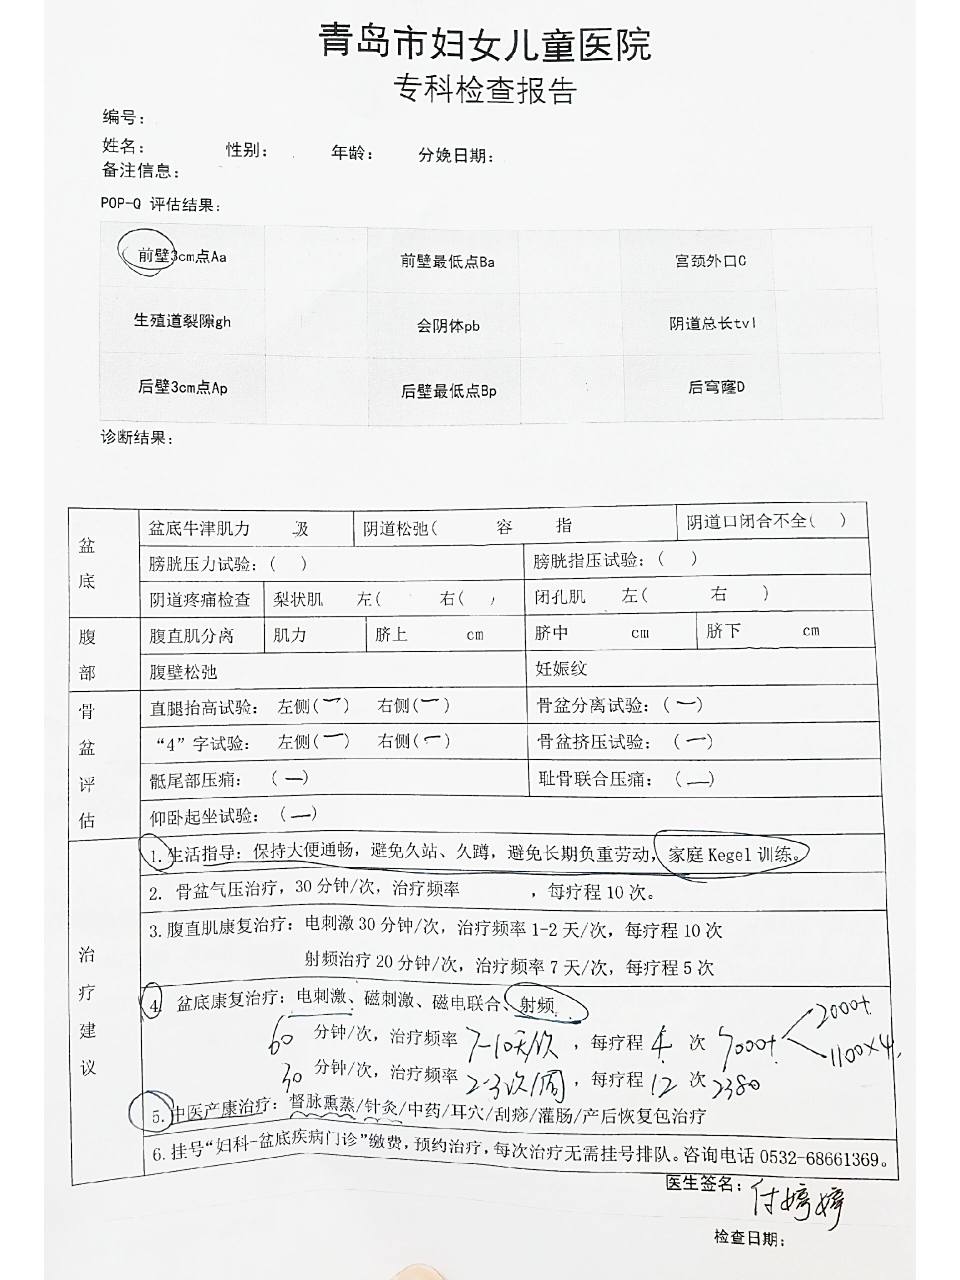 青岛市妇女儿童医院
专科检查报告
编号：
姓名： 性别： 年龄： 分娩日期：
备注信息：
POP-Q 评估结果：
前壁3cm点Aa 前壁最低点Ba 宫颈外口C
生殖道裂隙gh 会阴体pb 阴道总长tvl
后壁3cm点Ap 后壁最低点Bp 后穹窿D
诊断结果：
盆底
盆底牛津肌力 级 阴道松弛( 容 指 阴道口闭合不全( )
膀胱压力试验：( ) 膀胱指压试验：( )
阴道疼痛检查 梨状肌 左( 右( ) 闭孔肌 左( 右 )
腹部
腹直肌分离 肌力 脐上 cm 脐中 cm 脐下 cm
腹壁松弛 妊娠纹
骨盆评估
直腿抬高试验： 左侧(一) 右侧(一) 骨盆分离试验：(一)
“4”字试验： 左侧(一) 右侧(一) 骨盆挤压试验：(一)
骶尾部压痛： (一) 耻骨联合压痛：(一)
仰卧起坐试验：(一)
治疗建议
1.生活指导：保持大便通畅，避免久站、久蹲，避免长期负重劳动，家庭 Kegel 训练。
2. 骨盆气压治疗，30 分钟/次，治疗频率 ，每疗程 10 次。
3.腹直肌康复治疗：电刺激 30 分钟/次，治疗频率 1-2 天/次，每疗程 10 次
射频治疗 20 分钟/次，治疗频率 7 天/次，每疗程 5 次
4. 盆底康复治疗：电刺激、磁刺激、磁电联合、射频
60 分钟/次，治疗频率 7-10天/次 ，每疗程 4 次 7000+ 2000+
1100×4
30 分钟/次，治疗频率 2-3次/周 ，每疗程 12 次 2380
5.中医产康治疗：督脉熏蒸/针灸/中药/耳穴/刮痧/灌肠/产后恢复包治疗
6.挂号“妇科-盆底疾病门诊”缴费，预约治疗，每次治疗无需挂号排队。咨询电话 0532-68661369。
医生签名：付婷婷
检查日期：